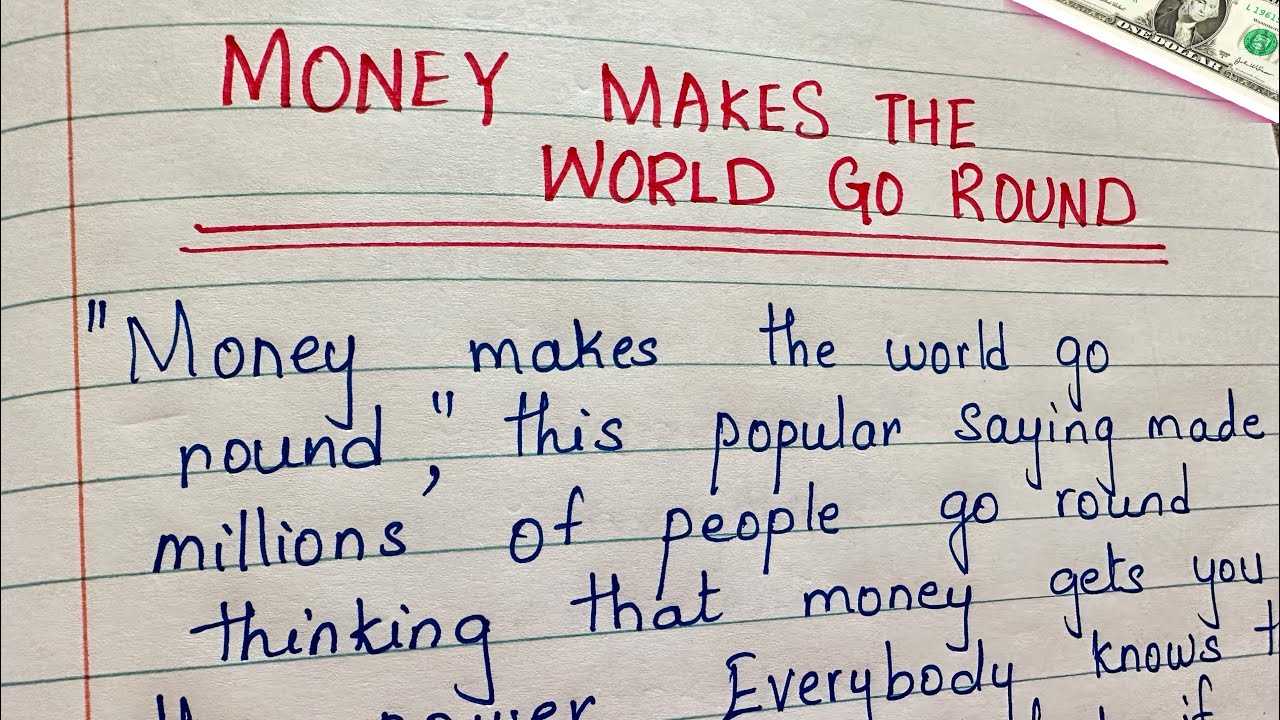 MONEY MAKES THE
WORLD GO ROUND
"Money makes the world go
round," this popular saying made
millions of people go round
thinking that money gets you
power. Everybody knows
if
ONE DOLLAR
L1961